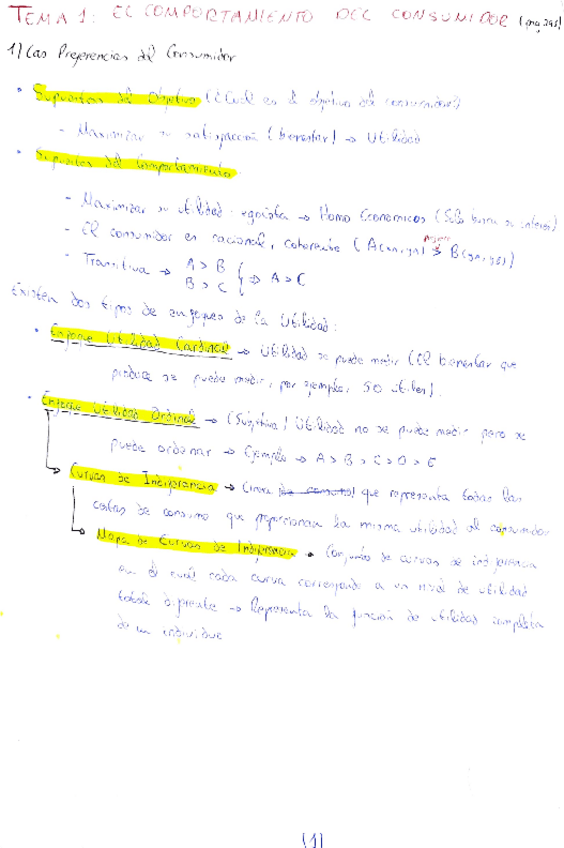 TEMA 1: EL COMPORTAMIENTO DEL CONSUMIDOR (pag 295)
1) Las Preferencias del Consumidor
• Supuestos del Objetivo (¿Cuál es el objetivo del consumidor?)
- Maximizar su satisfacción (bienestar) → Utilidad
• Supuestos del Comportamiento
- Maximizar su utilidad: egoísta → Homo Economicos (Sólo busca su interés)
- El consumidor es racional, coherente (A(xn, yn) > B(yn, yβ))
- Transitiva → A > B
B > C } ⇒ A > C
Existen dos tipos de enfoques de la Utilidad:
• Enfoque Utilidad Cardinal → Utilidad se puede medir (El bienestar que
produce se puede medir, por ejemplo, 50 útiles).
• Enfoque Utilidad Ordinal → (Subjetiva) Utilidad no se puede medir pero se
puede ordenar → Ejemplo → A > B > C > D > E
→ Curvas de Indiferencia → Linea que representa todas las
cestas de consumo que proporcionan la misma utilidad al consumidor
→ Mapa de Curvas de Indiferencia • Conjunto de curvas de indiferencia
en el cuál cada curva corresponde a un nivel de utilidad
total diferente → Representa la función de utilidad completa
de un individuo
(1)